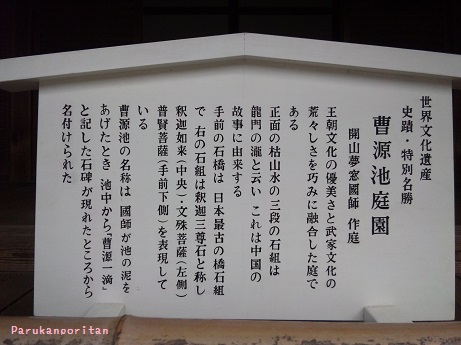 世界文化遺産
史蹟・特別名勝
曹源池庭園
開山夢窓國師 作庭
王朝文化の優美さと武家文化の
荒々しさを巧みに融合した庭で
ある
正面の枯山水の三段の石組は
龍門の瀧と云い これは中国の
故事に由来する
手前の石橋は 日本最古の橋石組
で 右の石組は釈迦三尊石と称し
釈迦如来(中央)・文殊菩薩(左側)
普賢菩薩(手前下側)を表現して
いる
曹源池の名称は 國師が池の泥を
あげたとき 池中から「曹源一滴」
と記した石碑が現れたところから
名付けられた
Parukanooritan